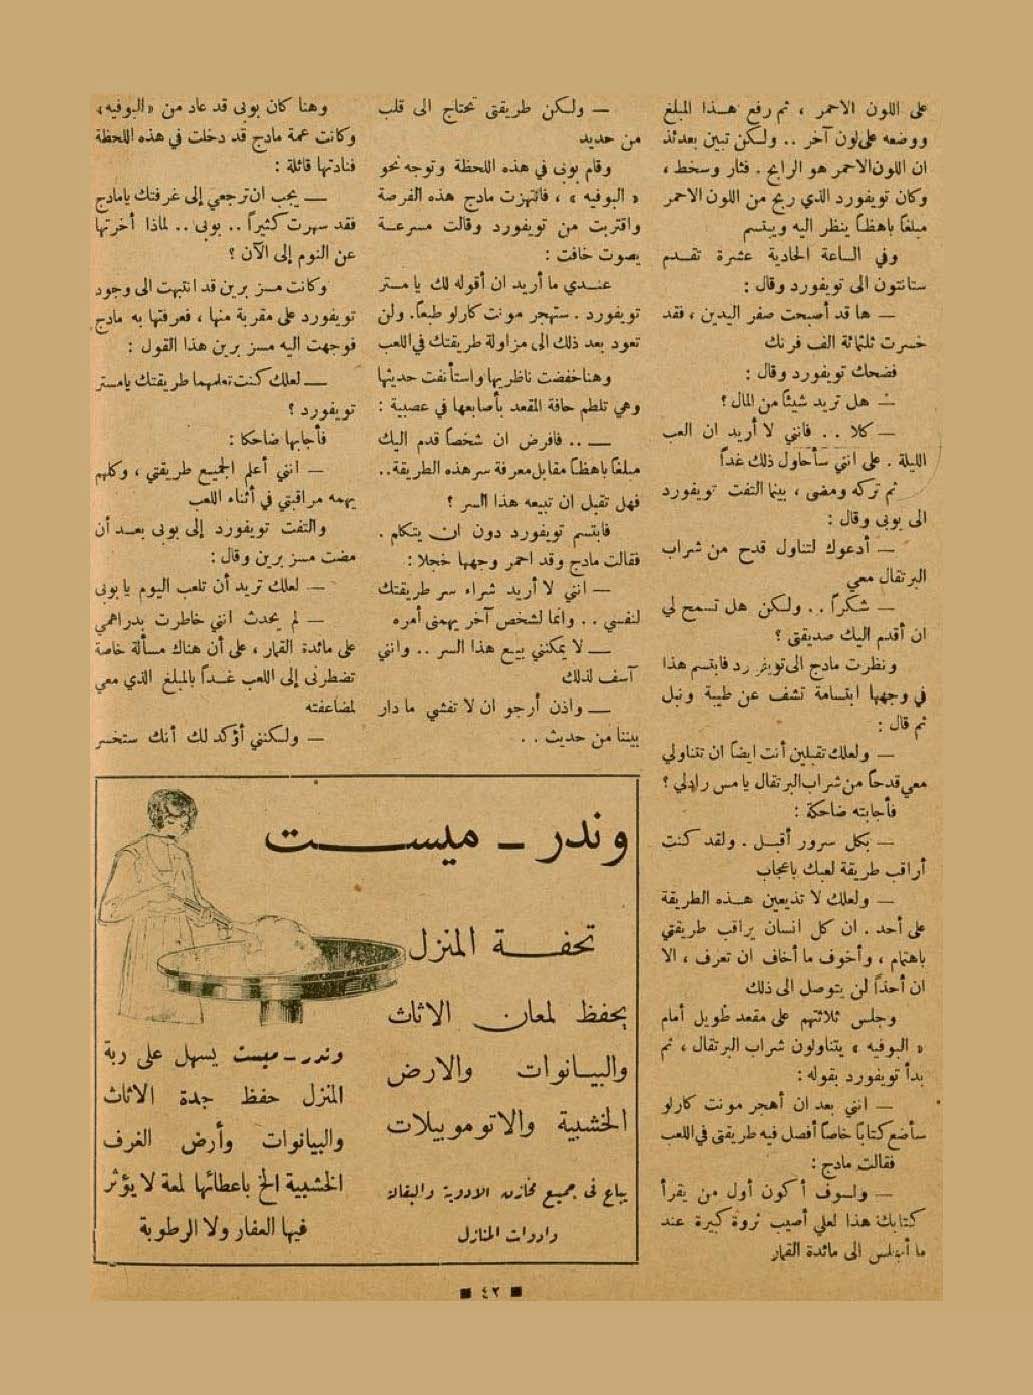 على اللون الاحمر ، ثم رفع هـذا المبلغ
ووضعه على لون آخر .. ولكن تبين بعدئذ
ان اللون الاحمر هو الرابح . فثار وسخط ،
وكان تويفورد الذي ربح من اللون الاحمر
مبلغاً باهظاً ينظر اليه ويبتسم
وفي الساعة الحادية عشرة تقـدم
ستانتون الى تويفورد وقال :
— ها قد أصبحت صفر اليدين ، فقد
خسرت ثلثمائة الف فرنك
فضحك تويفورد وقال :
— هل تريد شيئاً من المال ؟
— كلا .. فانني لا أريد ان العب
الليلة . على انني سأحاول ذلك غداً
ثم تركه ومضى ، بينما التفت تويفورد
الى بوبى وقال :
— أدعوك لتناول قدح من شراب
البرتقال معي
— شكراً .. ولكن هل تسمح لي
ان أقدم اليك صديقتى ؟
ونظرت مادج الى تويفورد فابتسم هذا
في وجهها ابتسامة تشف عن طيبة ونبل
ثم قال :
— ولعلك تقبلين أنت ايضاً ان تتناولي
معي قدحاً من شراب البرتقال يا مس رادلي ؟
فأجابته ضاحكة :
— بكل سرور أقبـل . ولقد كنت
أراقب طريقة لعبك باعجاب
— ولعلك لا تذيعين هـذه الطريقة
على أحد . ان كل انسان يراقب طريقتي
باهتمام ، وأخوف ما أخاف ان تعرف ، الا
ان أحداً لن يتوصل الى ذلك
وجلس ثلاثتهم على مقعد طويل أمام
« البوفيه » يتناولون شراب البرتقال ، ثم
بدأ تويفورد بقوله :
— انني بعد ان أهجر مونت كارلو
سأضع كتاباً خاصاً أفصل فيه طريقتى في اللعب
فقالت مادج :
— ولسوف أكون أول من يقرأ
كتابك هذا لعلي أصيب ثروة كبيرة عند
ما أجلس الى مائدة القمار
— ولكن طريقتى تحتاج الى قلب
من حديد
وقام بوبى في هذه اللحظة وتوجه نحو
« البوفيه » ، فانتهزت مادج هذه الفرصة
واقتربت من تويفورد وقالت مسرعـة
بصوت خافت :
عنـدي ما أريد ان أقوله لك يا مستر
تويفورد . ستهجر مونت كارلو طبعاً. ولن
تعود بعد ذلك الى مزاولة طريقتك في اللعب
وهنا خفضت ناظريها واستأنفت حديثها
وهي تلطم حافة المقعد بأصابعها في عصبية :
— .. فافرض ان شخصاً قدم اليك
مبلغاً باهظاً مقابل معرفة سر هذه الطريقة..
فهل تقبل ان تبيعه هذا السر ؟
فابتسم تويفورد دون ان يتكلم .
فقالت مادج وقد احمر وجهها خجلا :
— انني لا أريد شراء سر طريقتك
لنفسي .. وانما لشخص آخر يهمنى أمره
— لا يمكنني بيـع هذا السر .. وانني
آسف لذلك
— واذن أرجو ان لا تفشي ما دار
بيننا من حديث ..
وهنا كان بوبى قد عاد من «البوفيه»
وكانت عمة مادج قد دخلت في هذه اللحظة
فنادتها قائلة :
— يجب ان ترجعي إلى غرفتك يامادج
فقد سهرت كثيراً .. بوبى .. لماذا أخرتها
عن النوم إلى الآن ؟
وكانت مسز برين قد انتبهت الى وجود
تويفورد على مقربة منها ، فعرفتها به مادج
فوجهت اليه مسز برين هذا القول :
— لعلك كنت تعلمهما طريقتك يامستر
تويفورد ؟
فأجابها ضاحكا :
— انني أعلم الجميع طريقتي ، وكلهم
يهمه مراقبتي في أثناء اللعب
والتفت تويفورد إلى بوبى بعـد أن
مضت مسز برين وقال :
— لعلك تريد أن تلعب اليوم يا بوبى
— لم يحدث انني خاطرت بدراهمي
على مائدة القمار ، على أن هناك مسألة خاصة
تضطرنى إلى اللعب غـداً بالمبلغ الذي معي
لمضاعفته
— ولكنني أؤكد لك أنك ستخسر
وندر — ميست
تحفة المنزل
يحفظ لمعان الاثاث
والبيـانوات والارض
الخشبية والاتوموبيلات
يباع فى جميع مخازن الادوية والبقالة
وادوات المنازل
وندر — ميست يسهل على ربة
المنزل حفظ جدة الاثاث
والبيانوات وأرض الغرف
الخشبية الخ باعطائها لمعة لا يؤثر
فيها الغبار ولا الرطوبة
■ ٤٢ ■